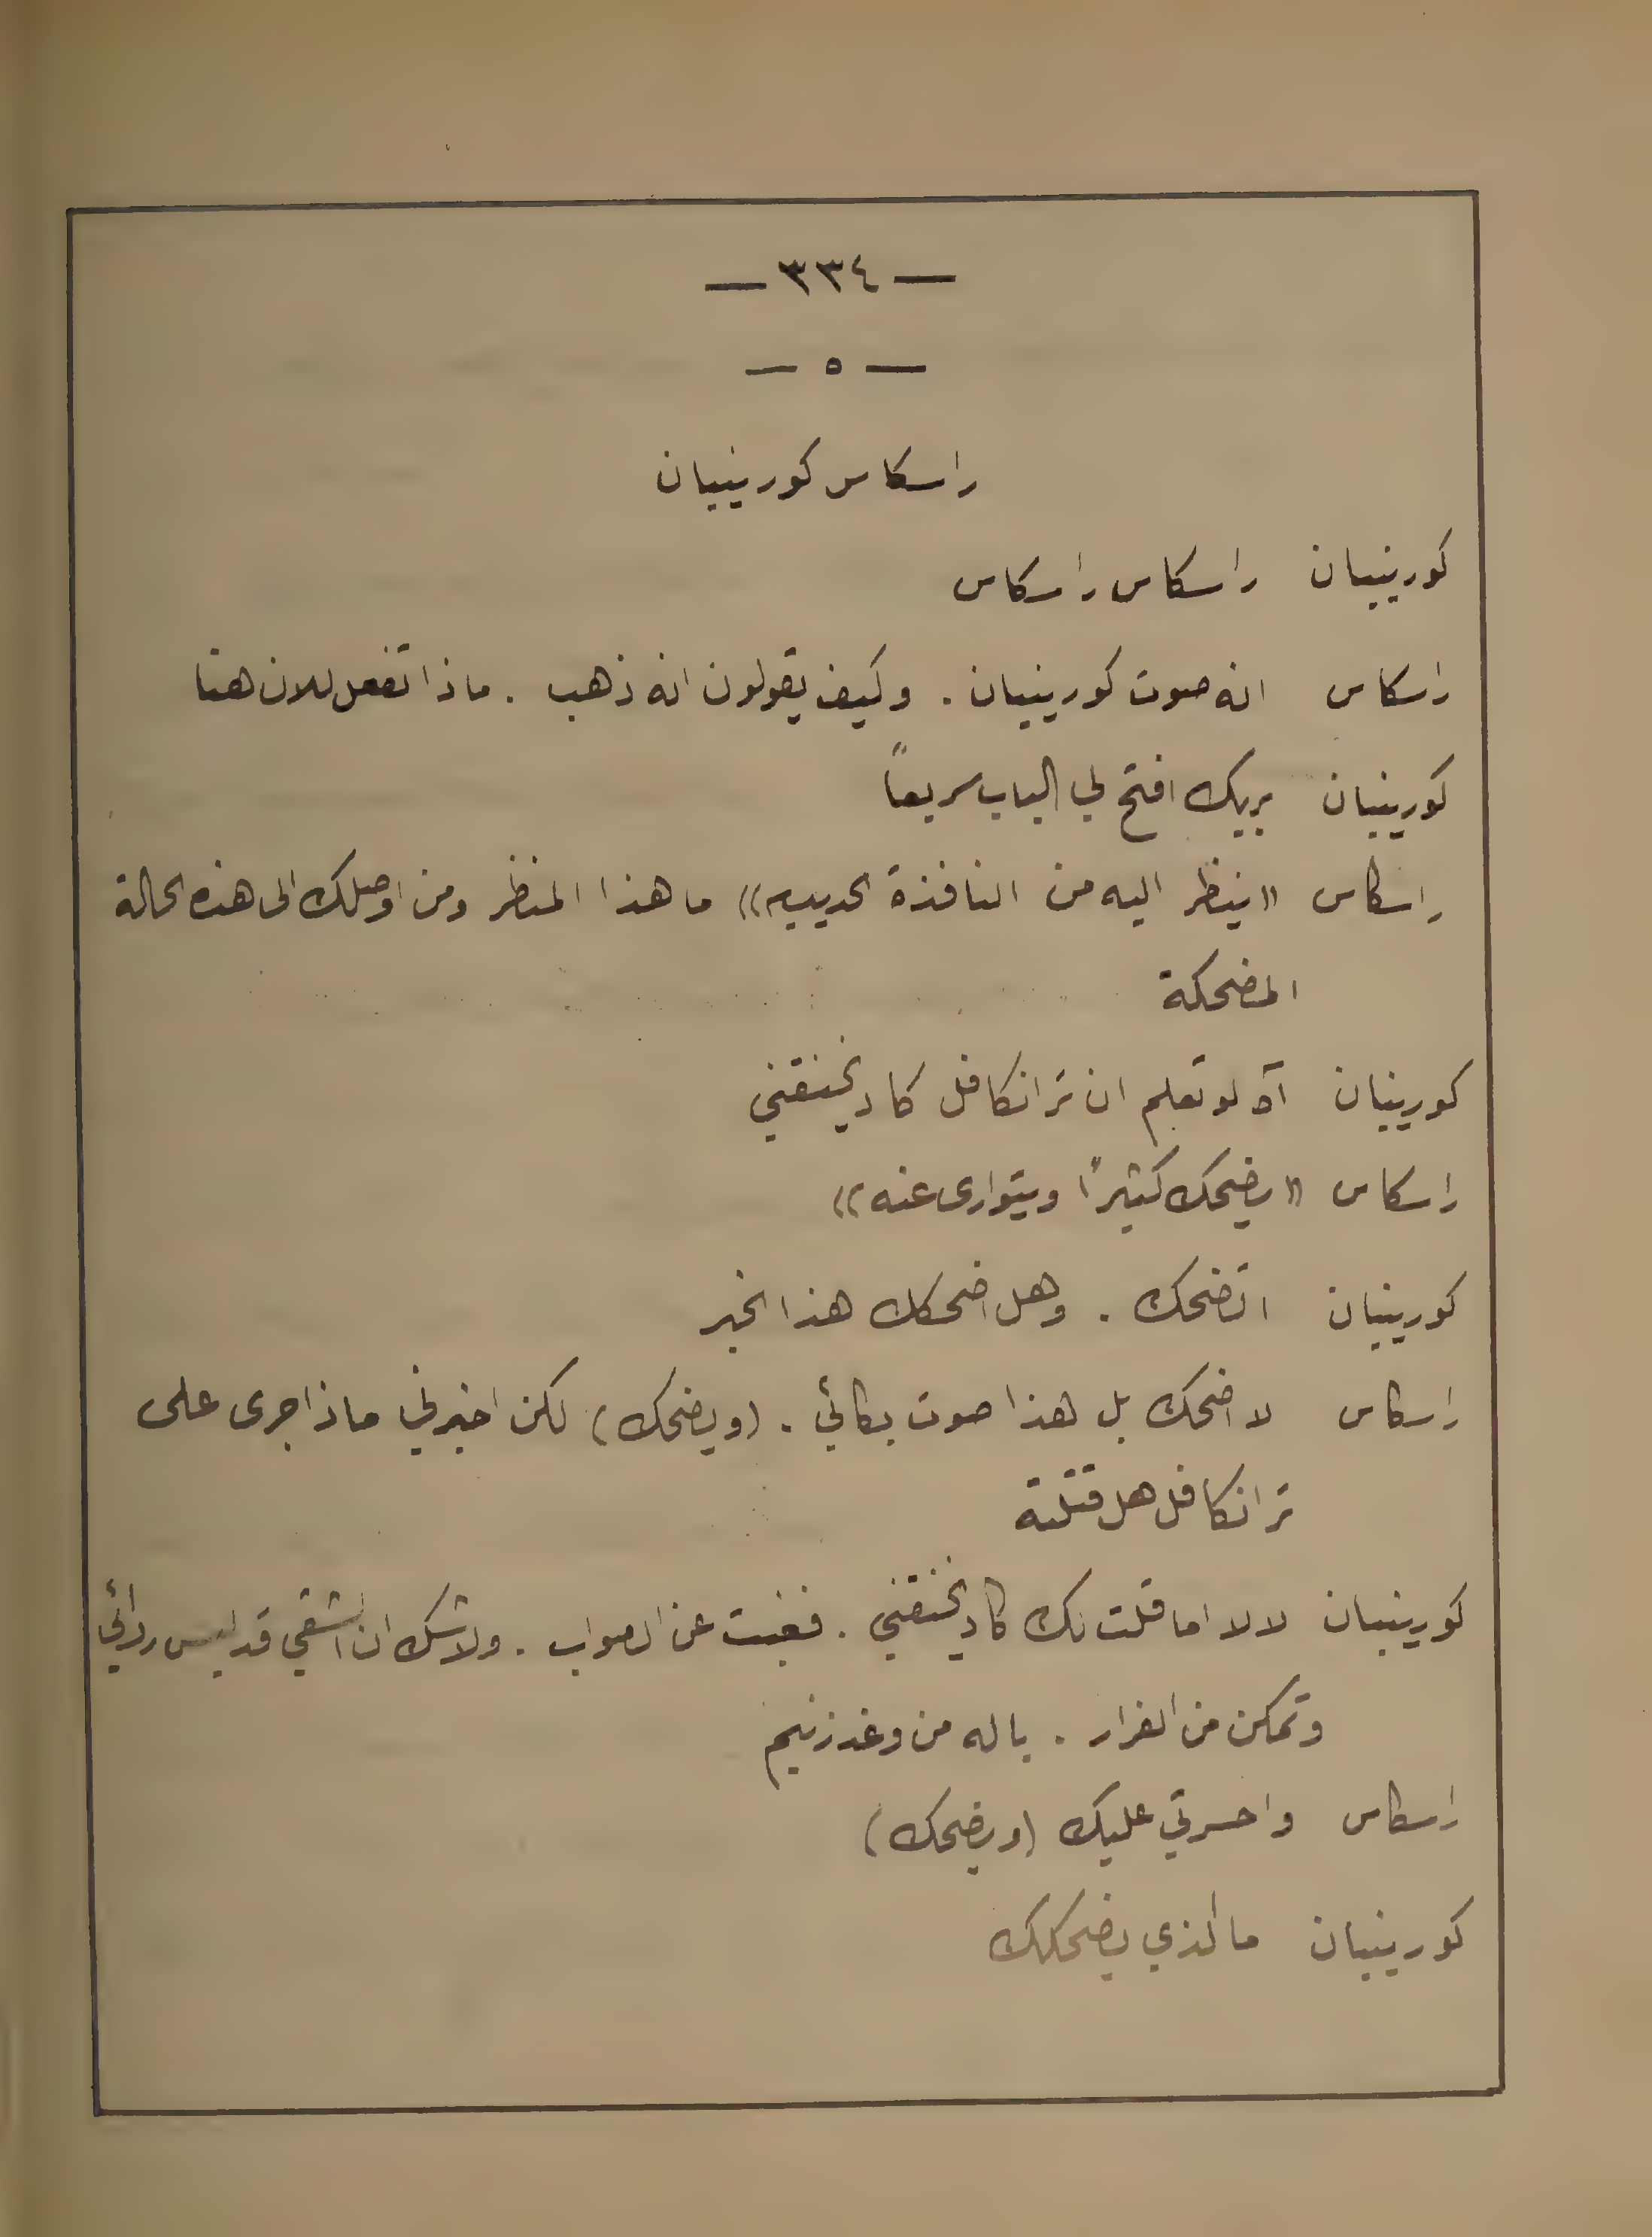 — ٣٣٤ —
— ٥ —
راسكاس كورينيان
كورينيان راسكاس راسكاس
راسكاس انه صوت كورينيان . وكيف يقولون انه ذهب . ماذا تفعل للان هنا
كورينيان بربك افتح لي الباب سريعاً
راسكاس «ينظر اليه من النافذة الحديديه» ما هذا المنظر ومن اوصلك الى هذه الحالة
المضحكة
كورينيان آه لو تعلم ان ترانكافل كاد يخنقني
راسكاس «يضحك كثيراً ويتوارى عنه»
كورينيان اتضحك . وهل اضحكك هذا الخبر
راسكاس لا اضحك بل هذا صوت بكائي . (ويضحك) لكن اخبرني ماذا جرى على
ترانكافل هل قتلته
كورينيان لا لا اما قلت لك كاد يخنقني . فغبت عن الصواب . ولا شك ان الشقي قد لبس ردائي
وتمكن من الفرار . يا له من وغد زنيم
راسكاس واحسرتي عليك (ويضحك)
كورينيان ما الذي يضحكك